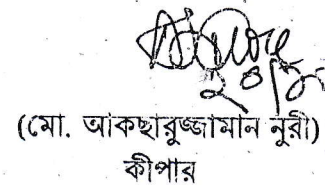 (মো. আকছারুজ্জামান নুরী)
কীপার